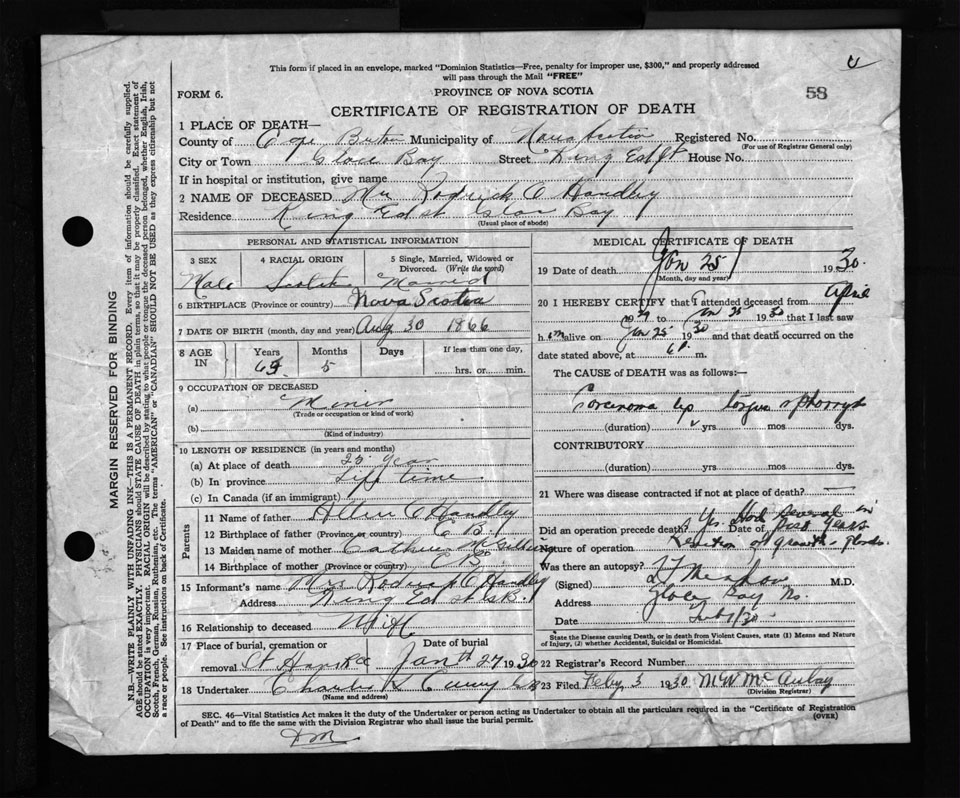 This form if placed in an envelope, marked "Dominion Statistics—Free, penalty for improper use, $300," and properly addressed
will pass through the Mail "FREE"
FORM 6.
PROVINCE OF NOVA SCOTIA
58
CERTIFICATE OF REGISTRATION OF DEATH
1 PLACE OF DEATH—
County of Cape Breton Municipality of Nova Scotia Registered No.
(For use of Registrar General only)
City or Town Glace Bay Street King Ed St House No.
If in hospital or institution, give name
2 NAME OF DECEASED Mr Rodrick C Handley
Residence King Ed st Glace Bay
(Usual place of abode)
PERSONAL AND STATISTICAL INFORMATION
3 SEX 4 RACIAL ORIGIN 5 Single, Married, Widowed or Divorced. (Write the word)
Male Scotish Married
6 BIRTHPLACE (Province or country) Nova Scotia
7 DATE OF BIRTH (month, day and year) Aug 30 1866
8 AGE IN Years Months Days If less than one day,
63 5 hrs. or min.
9 OCCUPATION OF DECEASED
(a) Miner
(Trade or occupation or kind of work)
(b)
(Kind of industry)
10 LENGTH OF RESIDENCE (in years and months)
(a) At place of death 25 year
(b) In province Life time
(c) In Canada (if an immigrant)
Parents
11 Name of father C Handley
12 Birthplace of father (Province or country) C B
13 Maiden name of mother
14 Birthplace of mother (Province or country) C B
15 Informant's name Mrs Rodrick C Handley
Address King Ed st G.B.
16 Relationship to deceased Wife
17 Place of burial, cremation or removal Date of burial
Jan th 27 1930
18 Undertaker Charles
(Name and address)
MEDICAL CERTIFICATE OF DEATH
19 Date of death Jan 25 1930
(Month, day and year)
20 I HEREBY CERTIFY that I attended deceased from April
1929 to Jan 25 1930 that I last saw
him alive on Jan 25 1930 and that death occurred on the
date stated above, at 6 P. m.
The CAUSE OF DEATH was as follows:—
Carcinoma lip
(duration) yrs mos dys.
CONTRIBUTORY
(duration) yrs. mos. dys.
21 Where was disease contracted if not at place of death?
Did an operation precede death? Yes. Had several in Date of past years
Nature of operation of growth & glands
Was there an autopsy?
(Signed) M.D.
Address Glace Bay
Date Feb 1/30
State the Disease causing Death, or in death from Violent Causes, state (1) Means and Nature
of Injury, (2) whether Accidental, Suicidal or Homicidal.
22 Registrar's Record Number
23 Filed Feby 3 1930 M W McAulay
(Division Registrar)
SEC. 46—Vital Statistics Act makes it the duty of the Undertaker or person acting as Undertaker to obtain all the particulars required in the "Certificate of Registration
of Death" and to file the same with the Division Registrar who shall issue the burial permit. (OVER)
MARGIN RESERVED FOR BINDING
N.B.—WRITE PLAINLY WITH UNFADING INK—THIS IS A PERMANENT RECORD. Every item of information should be carefully supplied.
AGE should be stated EXACTLY. PHYSICIANS should STATE CAUSE OF DEATH in plain terms, so that it may be properly classified. Exact statement of
OCCUPATION is very important. RACIAL ORIGIN will be described by stating to what people or tongue the deceased person belonged, whether English, Irish,
Scotch, French, German, Russian, Ruthenian, etc. The terms "AMERICAN" or "CANADIAN" SHOULD NOT BE USED as they express citizenship but not
a race or people. See instructions on back of Certificate.